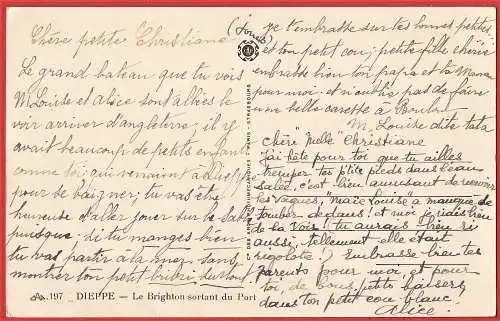 Chère petite Christiane
Le grand bateau que tu vois
M. Louise et Alice sont allées le
voir arriver d'angleterre; il y
avait beaucoup de petits enfants
comme toi qui venaient à Dieppe
pour se baigner; tu vas être
heureuse d'aller jouer sur le sable
puisque si tu manges bien
tu vas partir à la mer sans
montrer ton petit surtout
197 _ DIEPPE — Le Brighton sortant du Port
(joues)
je t'embrasse sur tes bonnes petites
et ton petit cou; petite fille chérie
embrasse bien ton papa et ta Maman
pour moi et n'oublie pas de faire
une belle caresse à
M. Louise dite tata
Chère "Melle" Christiane
j'ai hâte pour toi que tu ailles
tremper tes p'tits pieds dans l'eau
salée, c'est bien amusant de
les vagues, Marie Louise a manqué de
tomber dedans! et moi je riais bien
de la voir! tu aurais bien ri
aussi, tellement elle était
rigolote! Embrasse bien tes
parents pour moi, et pour
toi, de bons petits baisers
dans ton petit cou blanc.
Alice.